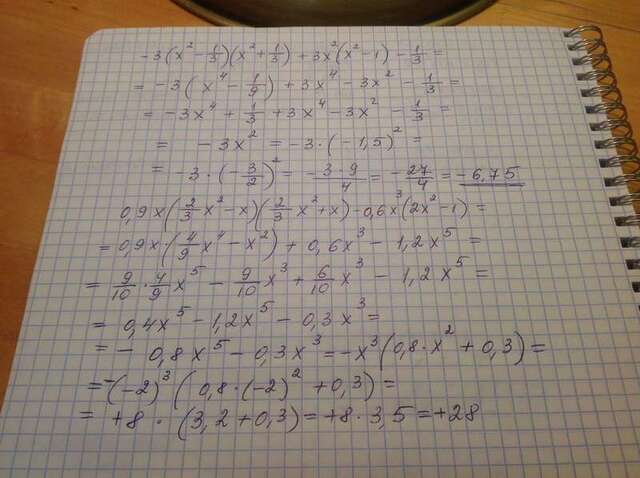 -3(x² - 1/3)(x² + 1/3) + 3x²(x² - 1) - 1/3 =
= -3(x⁴ - 1/9) + 3x⁴ - 3x² - 1/3 =
= -3x⁴ + 1/3 + 3x⁴ - 3x² - 1/3 =
= -3x² = -3·(-1,5)² =
= -3·(-3/2)² = -3·9/4 = -27/4 = -6,75
0,9x(2/3x² - x)(2/3x² + x) - 0,6x³(2x² - 1) =
= 0,9x·(4/9x⁴ - x²) + 0,6x³ - 1,2x⁵ =
= 9/10·4/9x⁵ - 9/10x³ + 6/10x³ - 1,2x⁵ =
= 0,4x⁵ - 1,2x⁵ - 0,3x³ =
= -0,8x⁵ - 0,3x³ = -x³(0,8·x² + 0,3) =
= -(-2)³(0,8·(-2)² + 0,3) =
= +8·(3,2 + 0,3) = +8·3,5 = +28